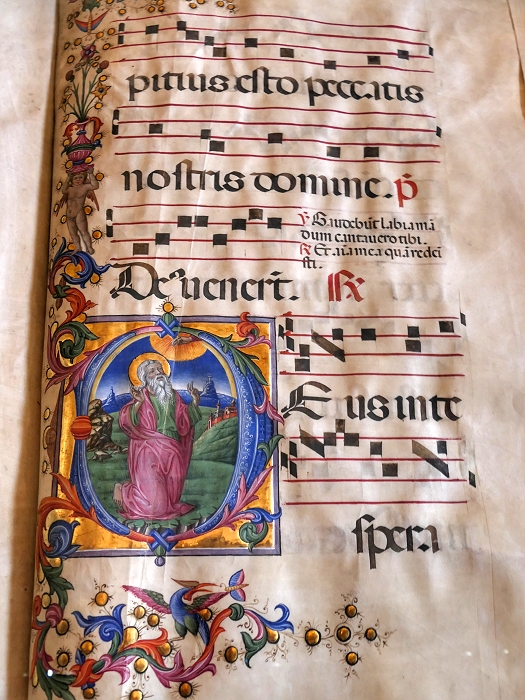 pitius esto peccatis
nostris domine. p̃
℣ Gaudebũt labia mã
dum cantauero tibi.
℟ Et aĩa mea quã redẽi
sti.
De uenerẽ. ℟
DEus in te
spera